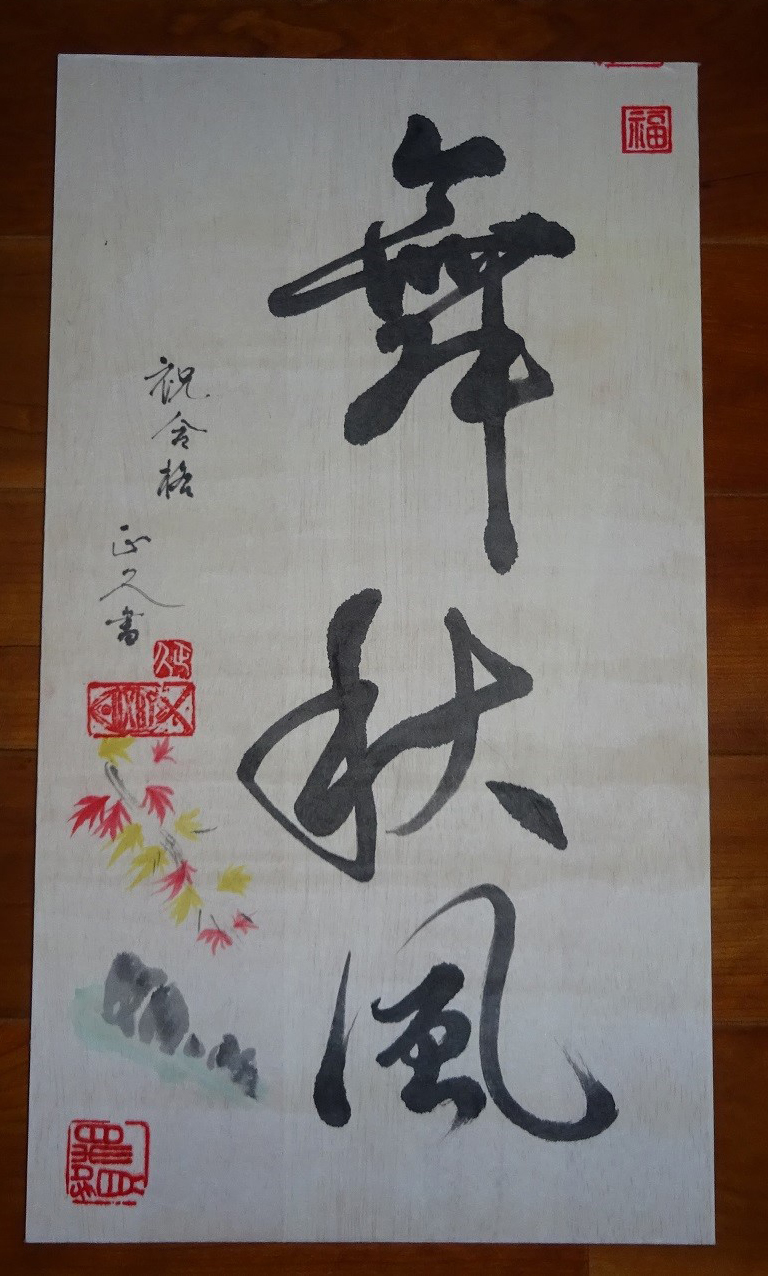 福
舞秋風
祝合格
正久書